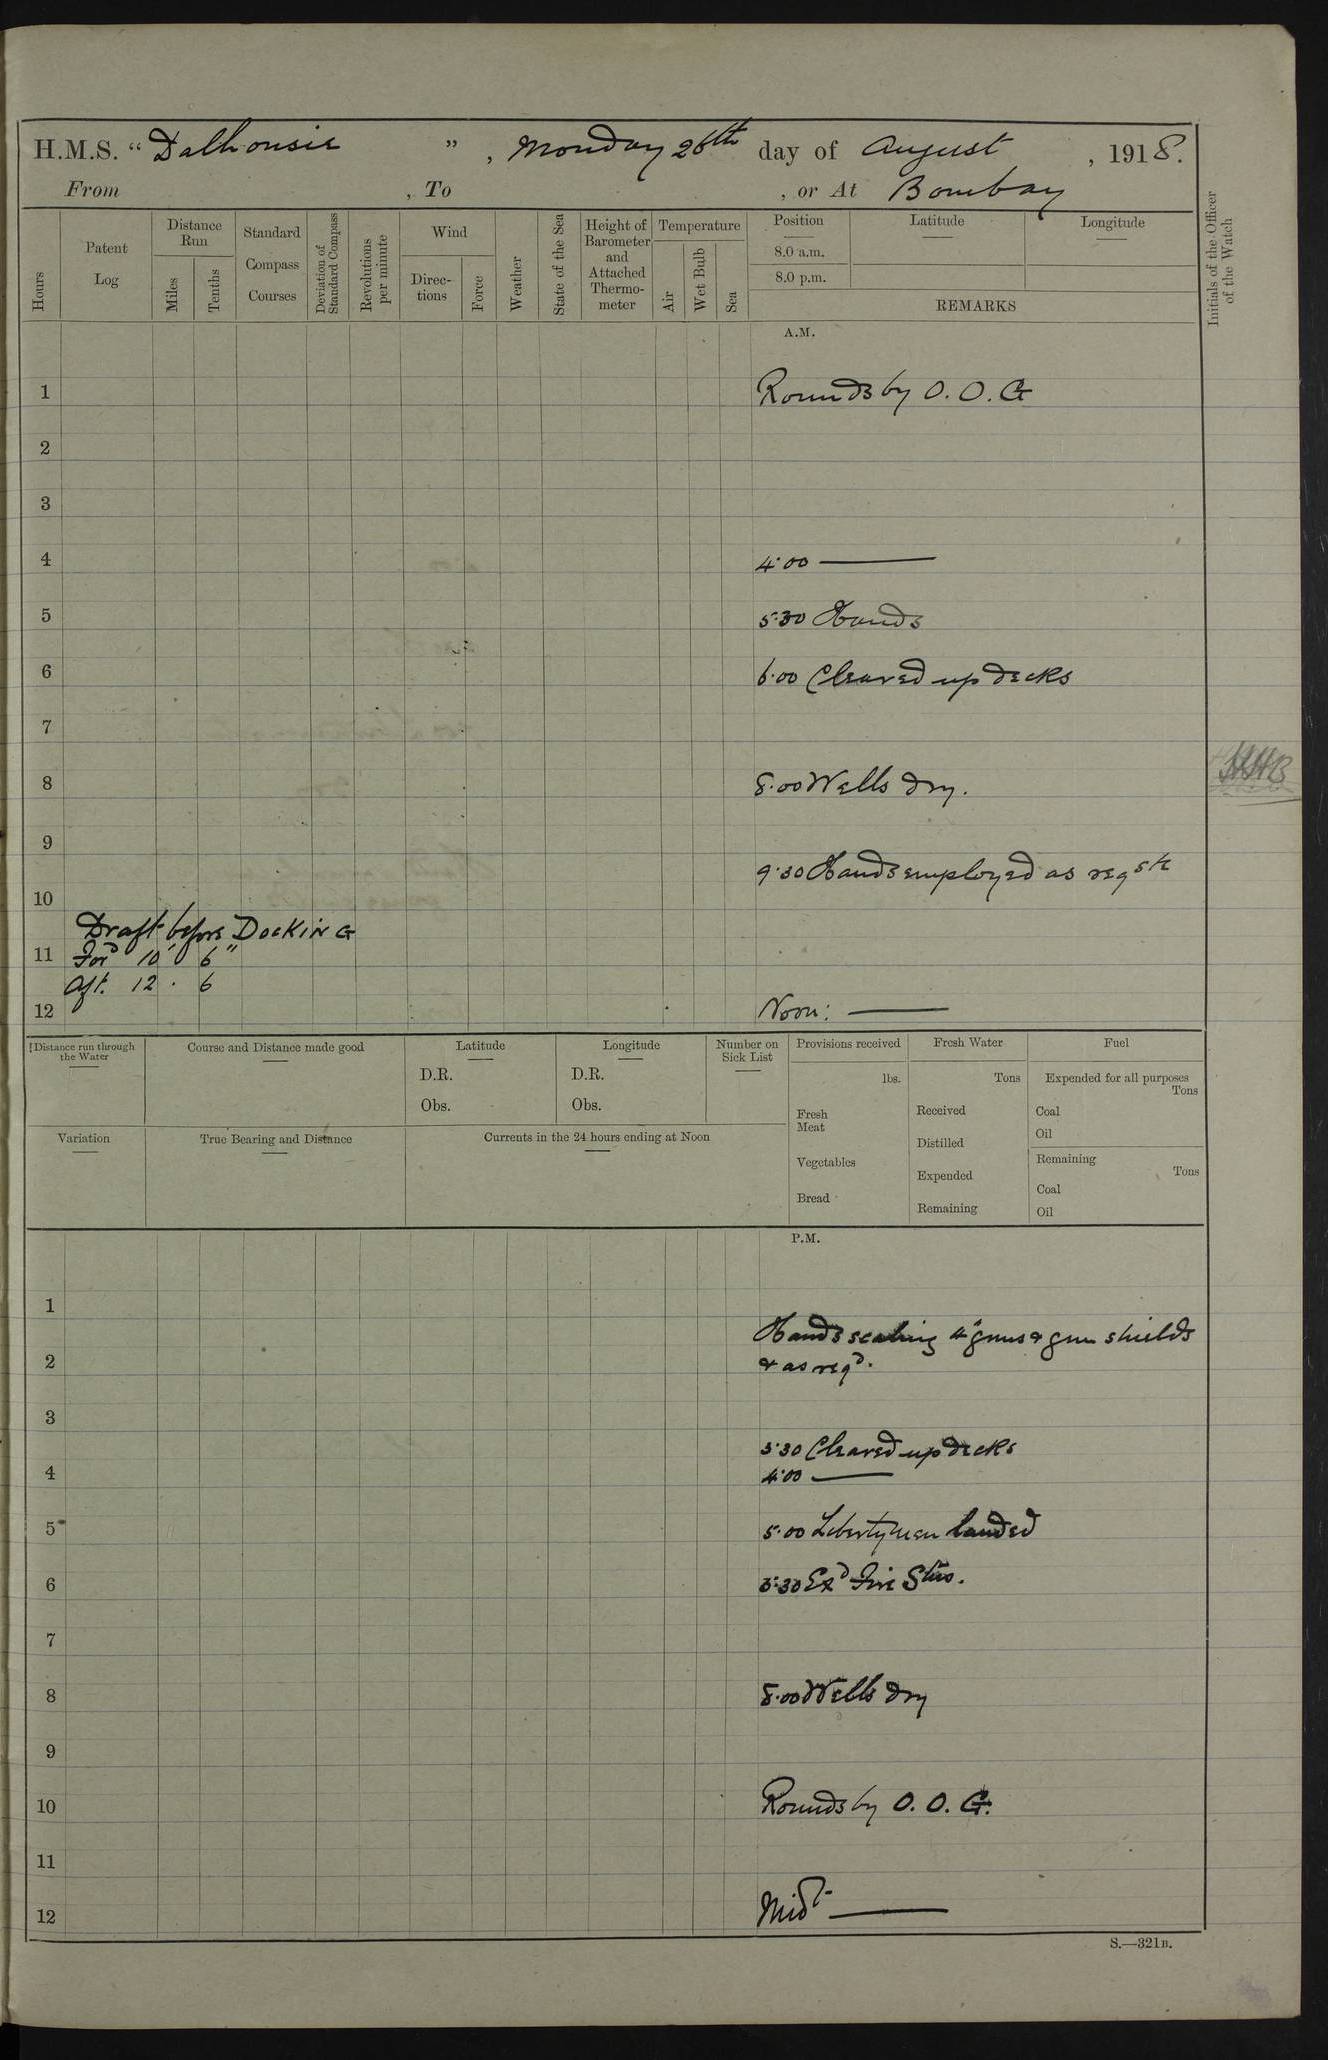 H.M.S. "Dalhousie", Monday 26th day of August, 1918.
From , To , or At Bombay
Hours
Patent Log
Distance Run
Miles
Tenths
Standard Compass Courses
Deviation of Standard Compass
Revolutions per minute
Wind
Directions
Force
Weather
State of the Sea
Height of Barometer and Attached Thermometer
Temperature
Air
Wet Bulb
Sea
Position
8.0 a.m.
8.0 p.m.
Latitude
Longitude
REMARKS
Initials of the Officer of the Watch
A.M.
1 Rounds by O.O.G
2
3
4 4.00 ———
5 5.30 Hands
6 6.00 Cleared up decks
7
8 8.00 Wells dry.
9
9.30 Hands employed as
10
Draft before Docking
11 For'd 10' 6"
Aft. 12 . 6
12 Noon: ———
Distance run through the Water
Course and Distance made good
Latitude
D.R.
Obs.
Longitude
D.R.
Obs.
Number on Sick List
Provisions received
lbs.
Fresh Meat
Vegetables
Bread
Fresh Water
Tons
Received
Distilled
Expended
Remaining
Fuel
Expended for all purposes
Tons
Coal
Oil
Remaining
Tons
Coal
Oil
Variation
True Bearing and Distance
Currents in the 24 hours ending at Noon
P.M.
1
Hands scaling 4" guns & gun shields
2 & as reqd.
3
3.30 Cleared up decks
4 4.00 ———
5 5.00 Liberty men landed
6 5.30 Exd Fire Stns.
7
8 8.00 Wells dry
9
10 Rounds by O.O.G.
11
12 Midt ———
S.—321B.